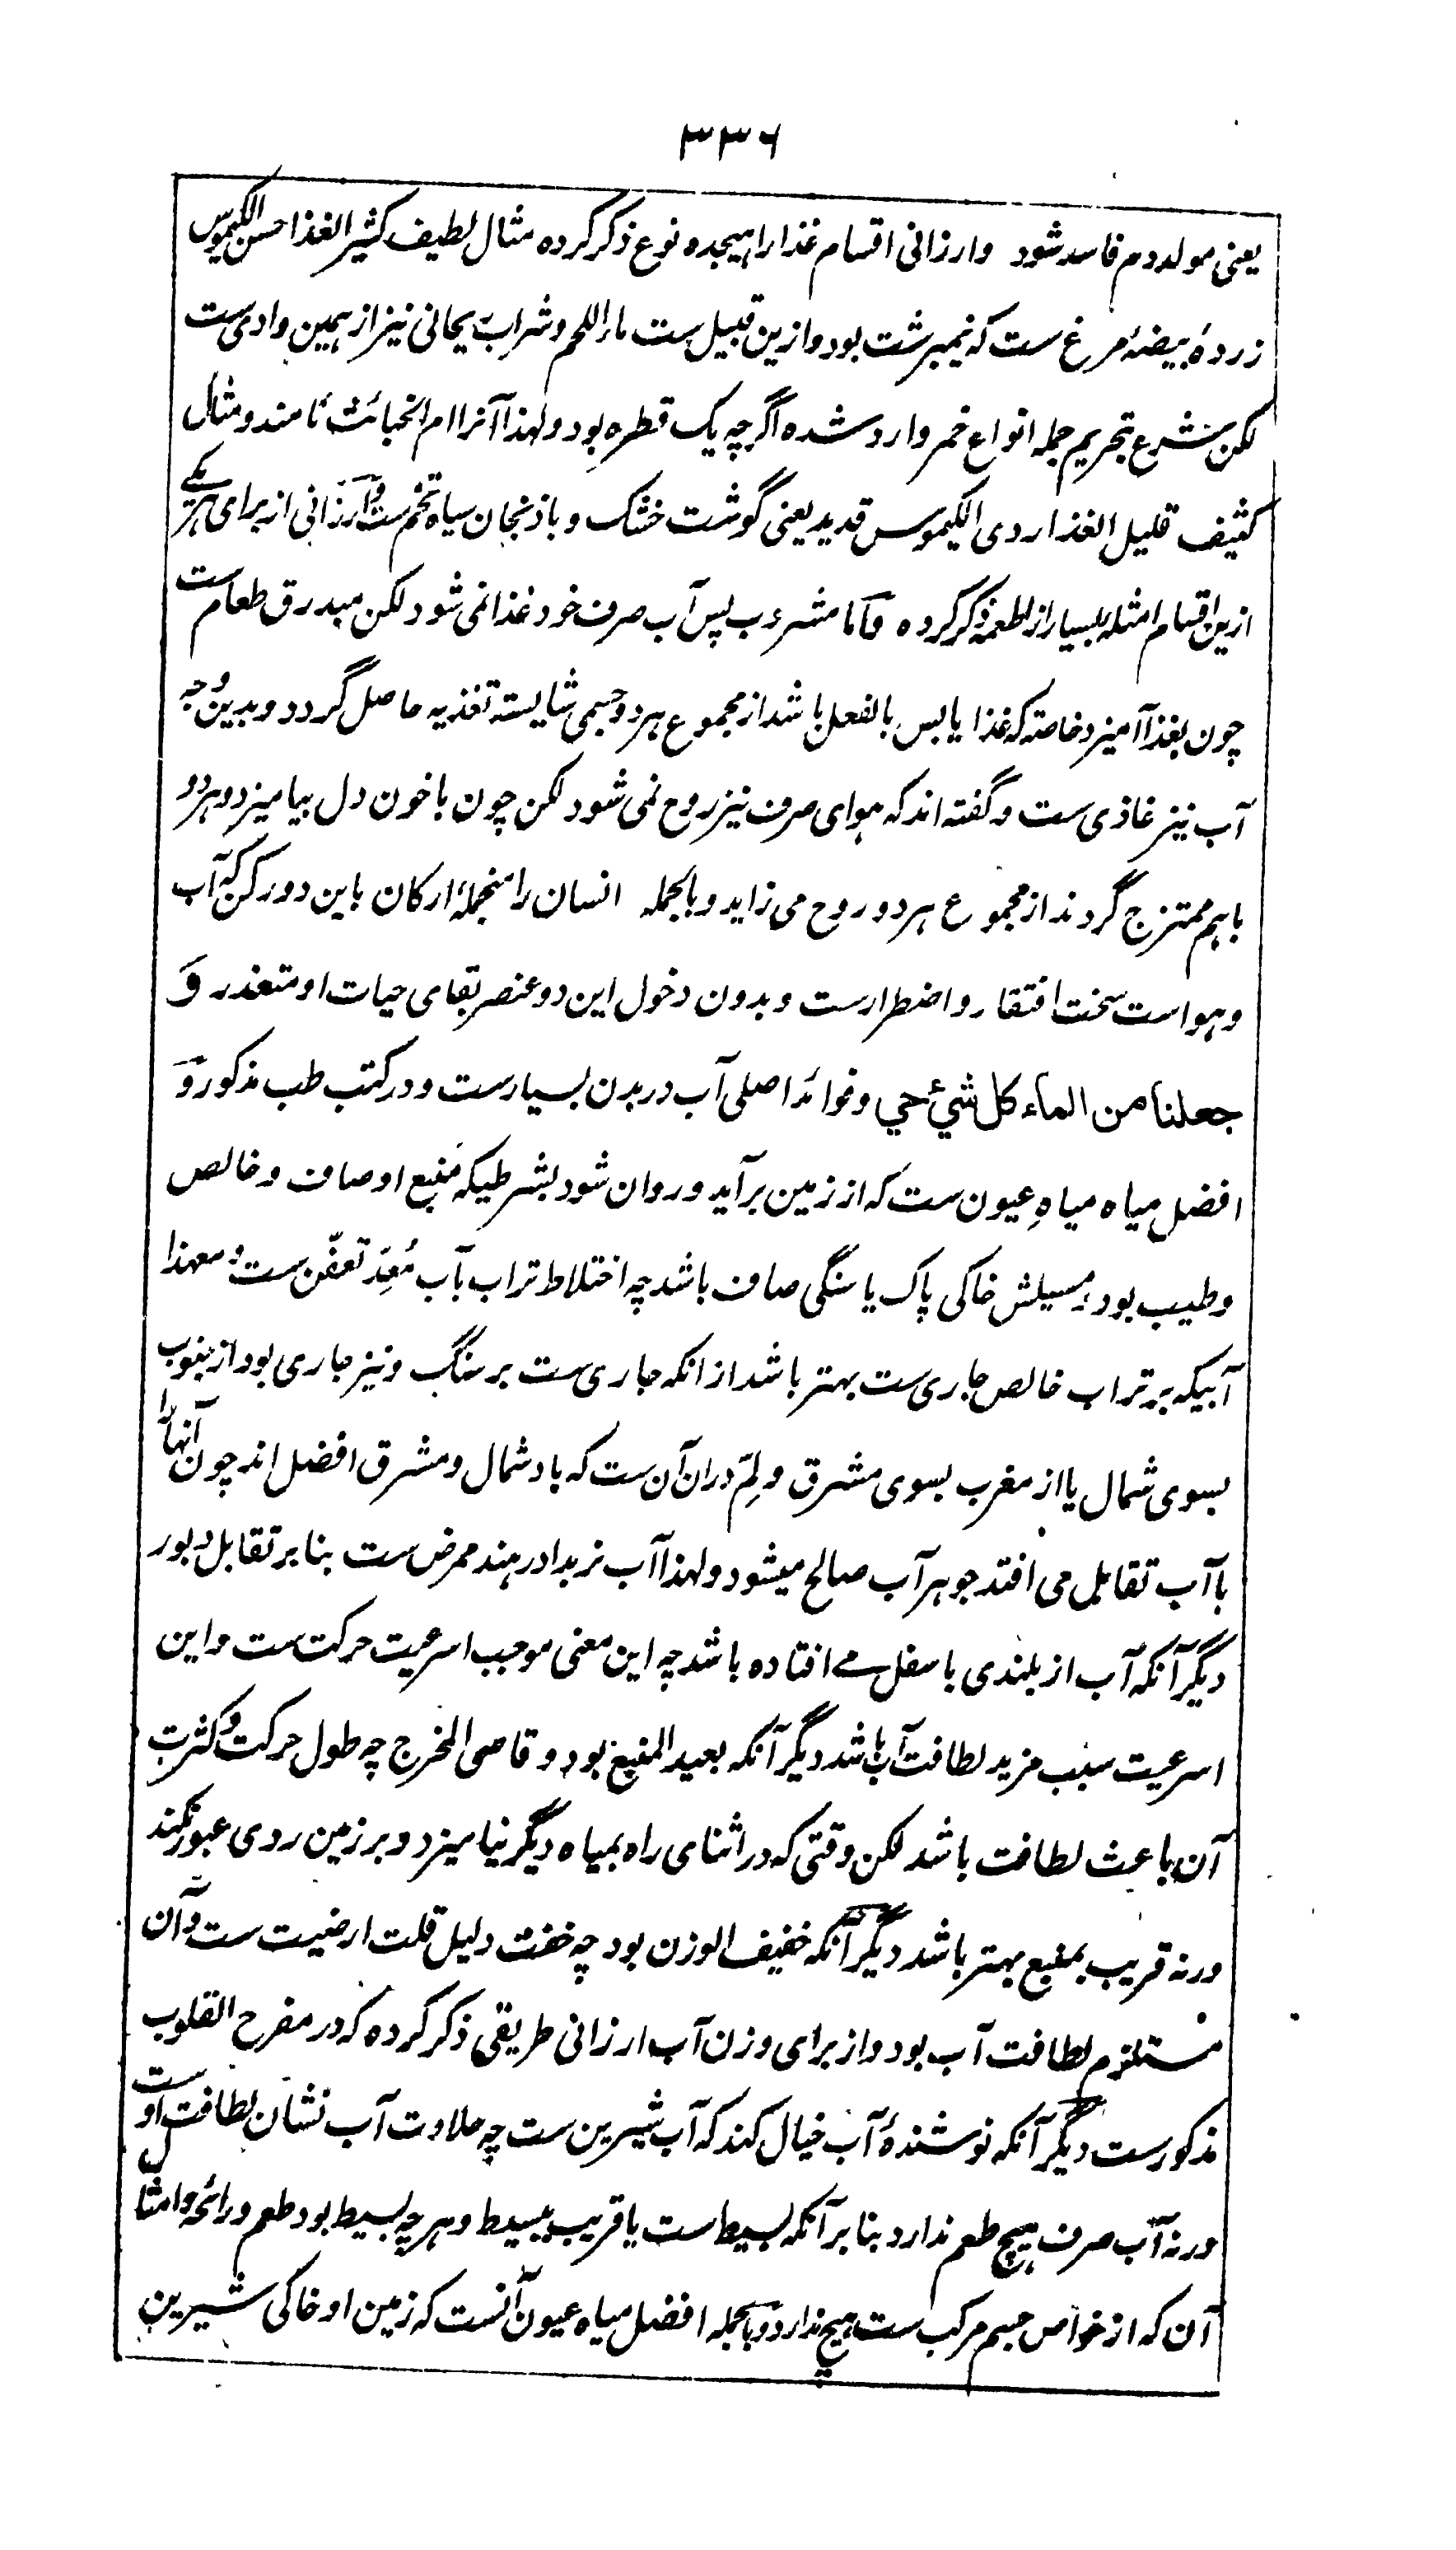 ۳۳۶
یعنی مولد دم فاسد شود وارزانی اقسام غذا را هیجده نوع ذکر کرده مثال لطیف کثیر الغذا حسن الکیموس
زردهٔ بیضهٔ مرغ ست که نیمبرشت بود وازین قبیل ست ماء اللحم وشراب ریحانی نیز از همین وادی ست
لکن شرع بتحریم جمله انواع خمر وارد شده اگرچه یک قطره بود ولهذا آنرا ام الخبائث نامند ومثال
کثیف قلیل الغذا ردی الکیموس قدید یعنی گوشت خشک وباذنجان سیاه تخم ست وارزانی از برای هر یکے
ازین اقسام امثله بسیار از اطعمه ذکر کرده واما مشروب پس آب صرف خود غذا نمی شود لکن مبدرق طعام ست
چون بغذا آمیزد خاصته که غذا یابس بالفعل باشد از مجموع هر دو جسمی شایسته تغذیه حاصل گردد وبدین وجه
آب نیز غاذی ست وگفته اند که هوای صرف نیز روح نمی شود لکن چون با خون دل بیامیزد وهر دو
باهم ممتزج گردند از مجموع هر دو روح می زاید وبالجمله انسان را منجملهٔ ارکان باین دو رکن که آب
وهواست سخت افتقار واضطرارست وبدون دخول این دو عنصر بقای حیات او متعذر و
جعلنا من الماء کل شیٔ حي وفوائد اصلی آب در بدن بسیارست ودر کتب طب مذکور و
افضل میاه میاهِ عیون ست که از زمین برآید وروان شود بشرطیکه منبع او صاف وخالص
وطیب بود ومسیلش خاکی پاک یا سنگی صاف باشد چه اختلاط تراب بآب مُعِدّ تعفّن ست ومعهذا
آبیکه بر تراب خالص جاری ست بهتر باشد از انکه جاری ست بر سنگ ونیز جاری بود از جنوب
بسوی شمال یا از مغرب بسوی مشرق ولِمّ دران آن ست که باد شمال ومشرق افضل اند چون آنها را
با آب تقابل می افتد جوهر آب صالح میشود ولهذا آب نربدا در هند ممرض ست بنا بر تقابل دبور
دیگر آنکه آب از بلندی با سفل مے افتاده باشد چه این معنی موجب اسرعیت حرکت ست واین
اسرعیت سبب مزید لطافت آب باشد دیگر آنکه بعید المنبع بود وقاصی المخرج چه طول حرکت وکثرت
آن باعث لطافت باشد لکن وقتی که در اثنای راه بمیاه دیگر نیامیزد وبر زمین ردی عبور نکند
ورنه قریب بمنبع بهتر باشد دیگر آنکه خفیف الوزن بود چه خفت دلیل قلت ارضیت ست وآن
مستلزم لطافت آب بود واز برای وزن آب ارزانی طریقی ذکر کرده که در مفرح القلوب
مذکورست دیگر آنکه نوشندهٔ آب خیال کند که آب شیرین ست چه حلاوت آب نشان لطافت اوست
ورنه آب صرف هیچ طعم ندارد بنا بر آنکه بسیط ست یا قریب ببسیط وهر چه بسیط بود طعم ورائحه وامثال
آن که از خواص جسم مرکب ست هیچ ندارد وبالجمله افضل میاه عیون آنست که زمین او خاکی شیرین